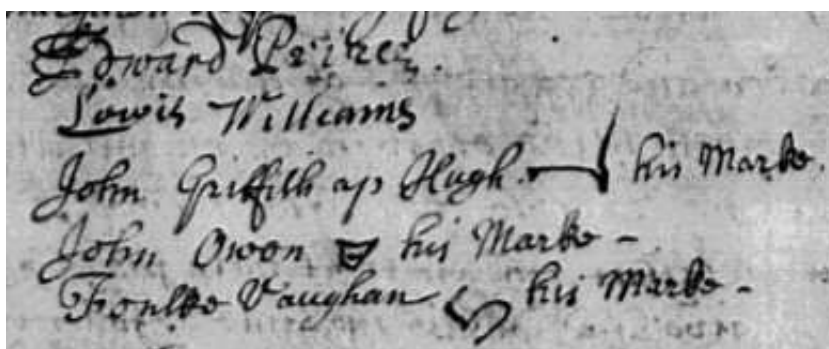 Edward
Lewis Williams
John Griffith ap Hugh his Marke.
John Owen his Marke -
Foulke Vaughan his Marke -